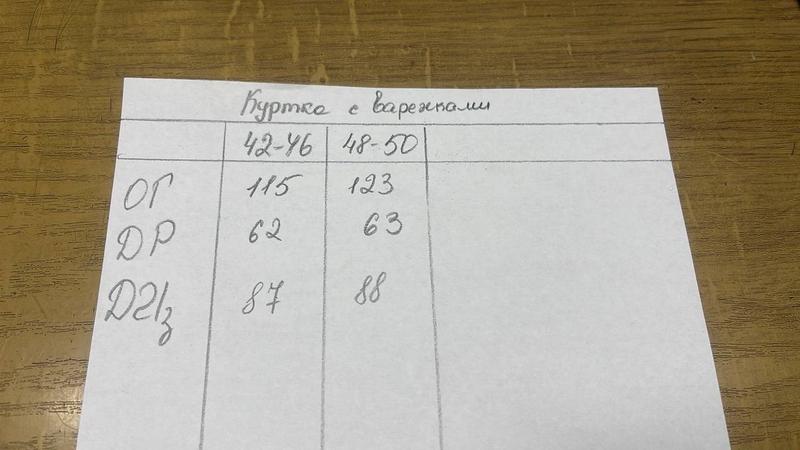 Куртка с варежками
42-46 48-50
ОГ 115 123
ДР 62 63
ДИз 87 88